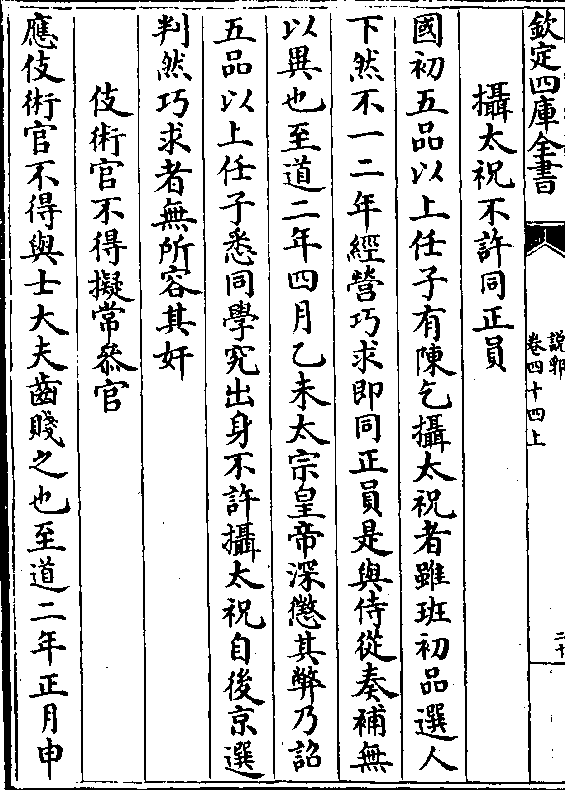 欽定四庫全書
說郛
卷四十四上
攝太祝不許同正員
國初五品以上任子有陳乞攝太祝者雖班初品選人
下然不一二年經營巧求即同正員是與侍從奏補無
以異也至道二年四月乙未太宗皇帝深懲其弊乃詔
五品以上任子悉同學究出身不許攝太祝自後京選
判然巧求者無所容其奸
伎術官不得擬常叅官
應伎術官不得與士大夫齒賤之也至道二年正月申